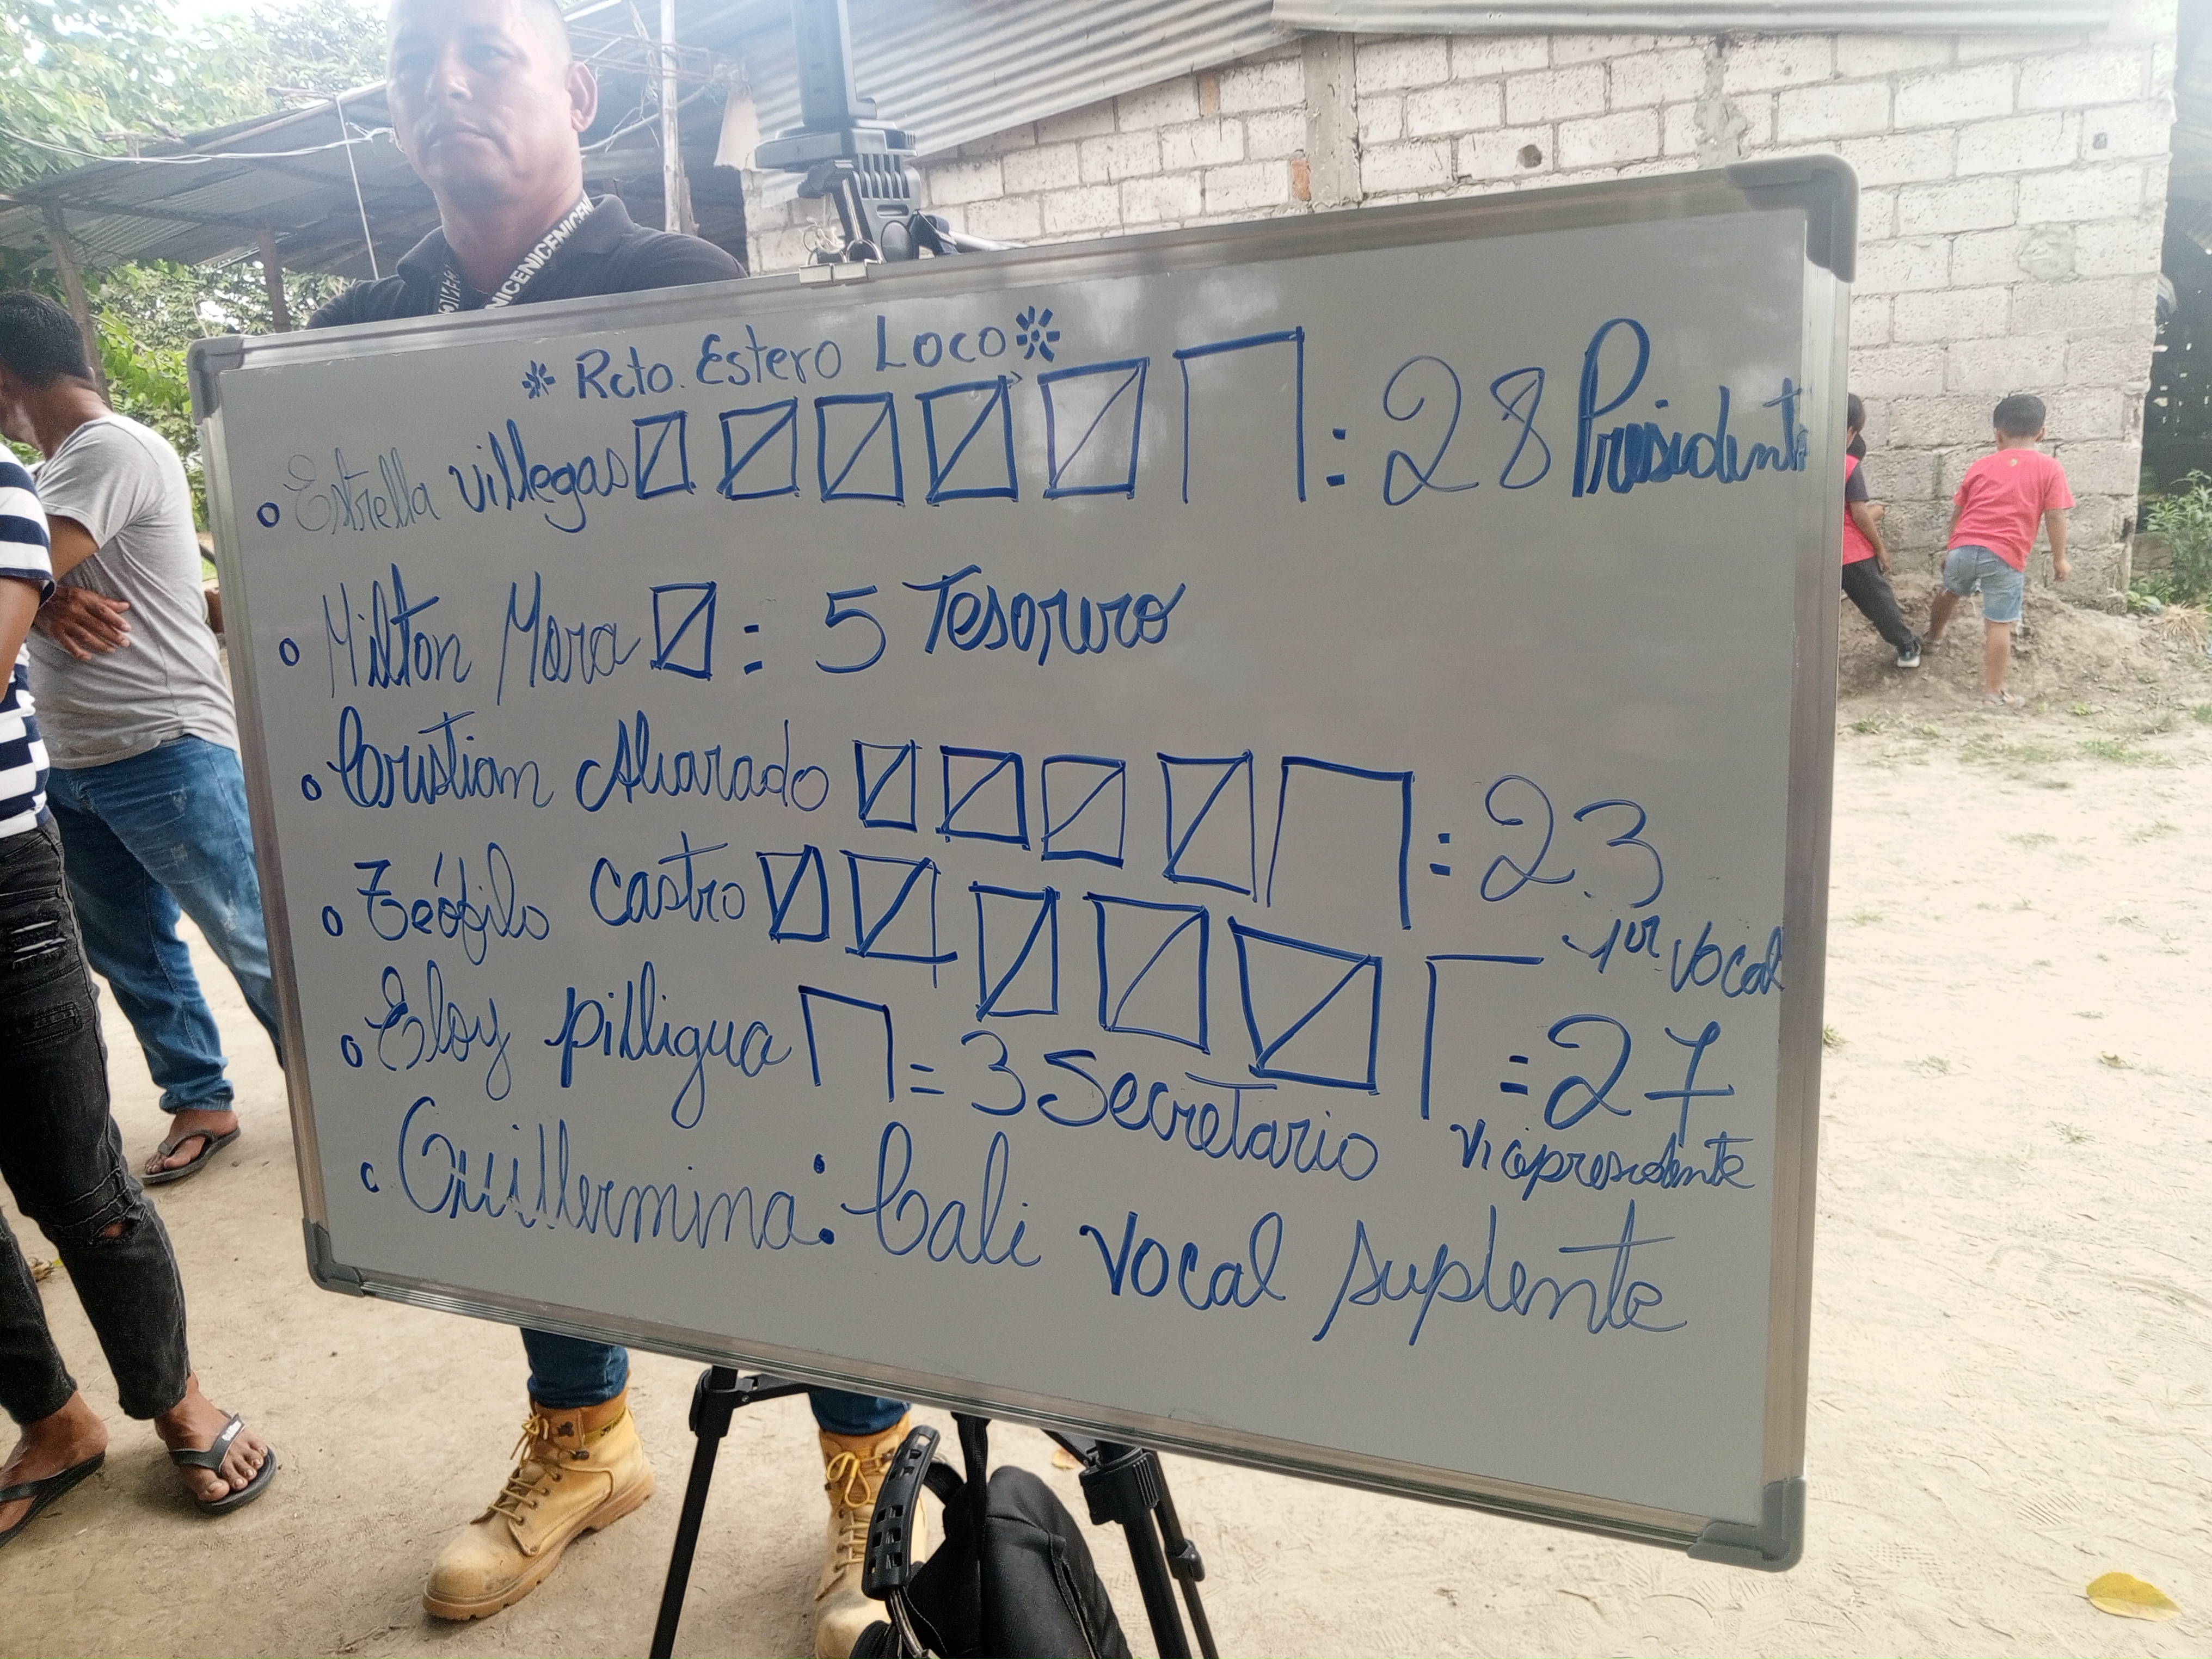 NICENICENICENI
* Rcto. Estero Loco *
o Estrella villegas : 28 Presidente
o Milton Mora : 5 Tesorero
o Cristian Alvarado : 23
1er Vocal
o Teófilo Castro = 27
Vicepresidente
o Eloy pilligua = 3 Secretario
o Guillermina : Cali Vocal suplente